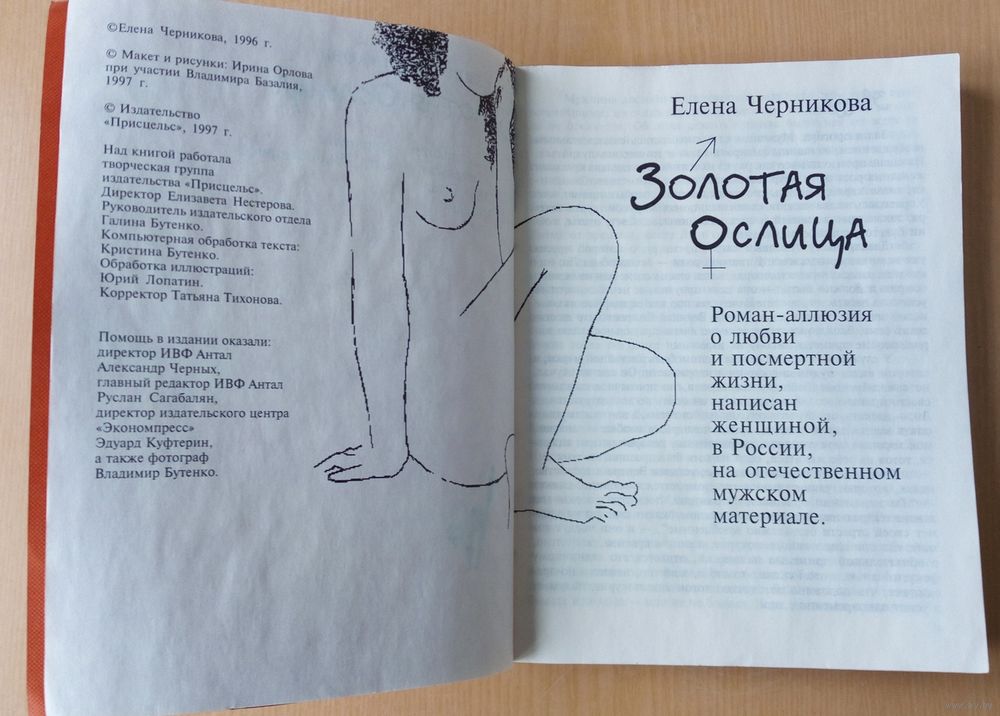 ©Елена Черникова, 1996 г.
© Макет и рисунки: Ирина Орлова
при участии Владимира Базалия,
1997 г.
© Издательство
«Присцельс», 1997 г.
Над книгой работала
творческая группа
издательства «Присцельс».
Директор Елизавета Нестерова.
Руководитель издательского отдела
Галина Бутенко.
Компьютерная обработка текста:
Кристина Бутенко.
Обработка иллюстраций:
Юрий Лопатин.
Корректор Татьяна Тихонова.
Помощь в издании оказали:
директор ИВФ Антал
Александр Черных,
главный редактор ИВФ Антал
Руслан Сагабалян,
директор издательского центра
«Экономпресс»
Эдуард Куфтерин,
а также фотограф
Владимир Бутенко.
Елена Черникова
ЗОЛОТАЯ
ОСЛИЦА
Роман-аллюзия
о любви
и посмертной
жизни,
написан
женщиной,
в России,
на отечественном
мужском
материале.